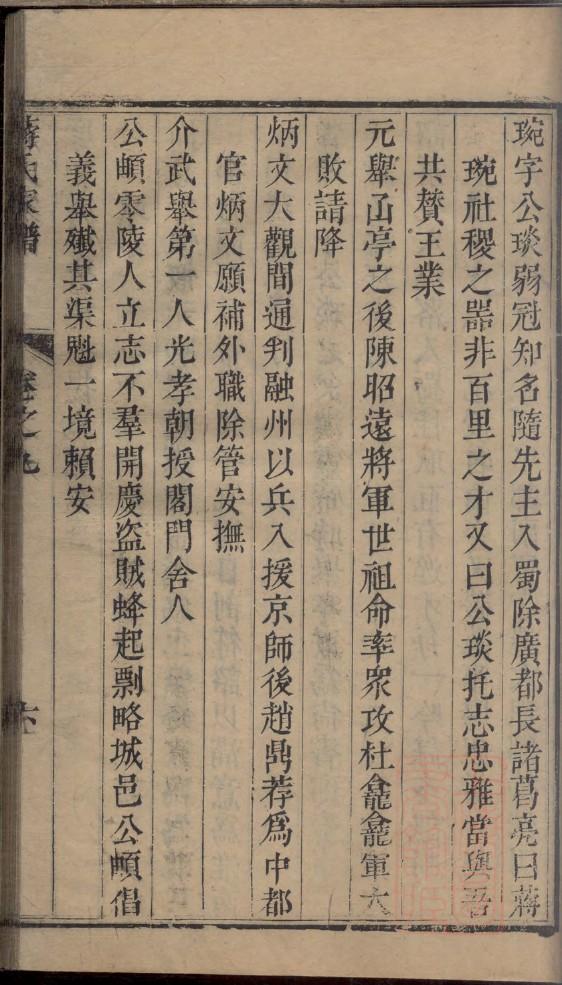 琬字公琰弱冠知名隨先主入蜀除廣都長諸葛亮曰蔣
琬社稷之器非百里之才又曰公琰托志忠雅當與吾
共贊王業
元舉凾亭之後陳昭遠將軍世祖命率眾攻杜龕龕軍大
敗請降
炳文大觀間通判融州以兵入援京師後趙鼎荐爲中都
官炳文願補外職除管安撫
介武舉第一人光孝朝授閣門舍人
公頔零陵人立志不羣開慶盜賊蜂起剽略城邑公頔倡
義舉殲其渠魁一境賴安
蔣氏家譜 卷之九 六